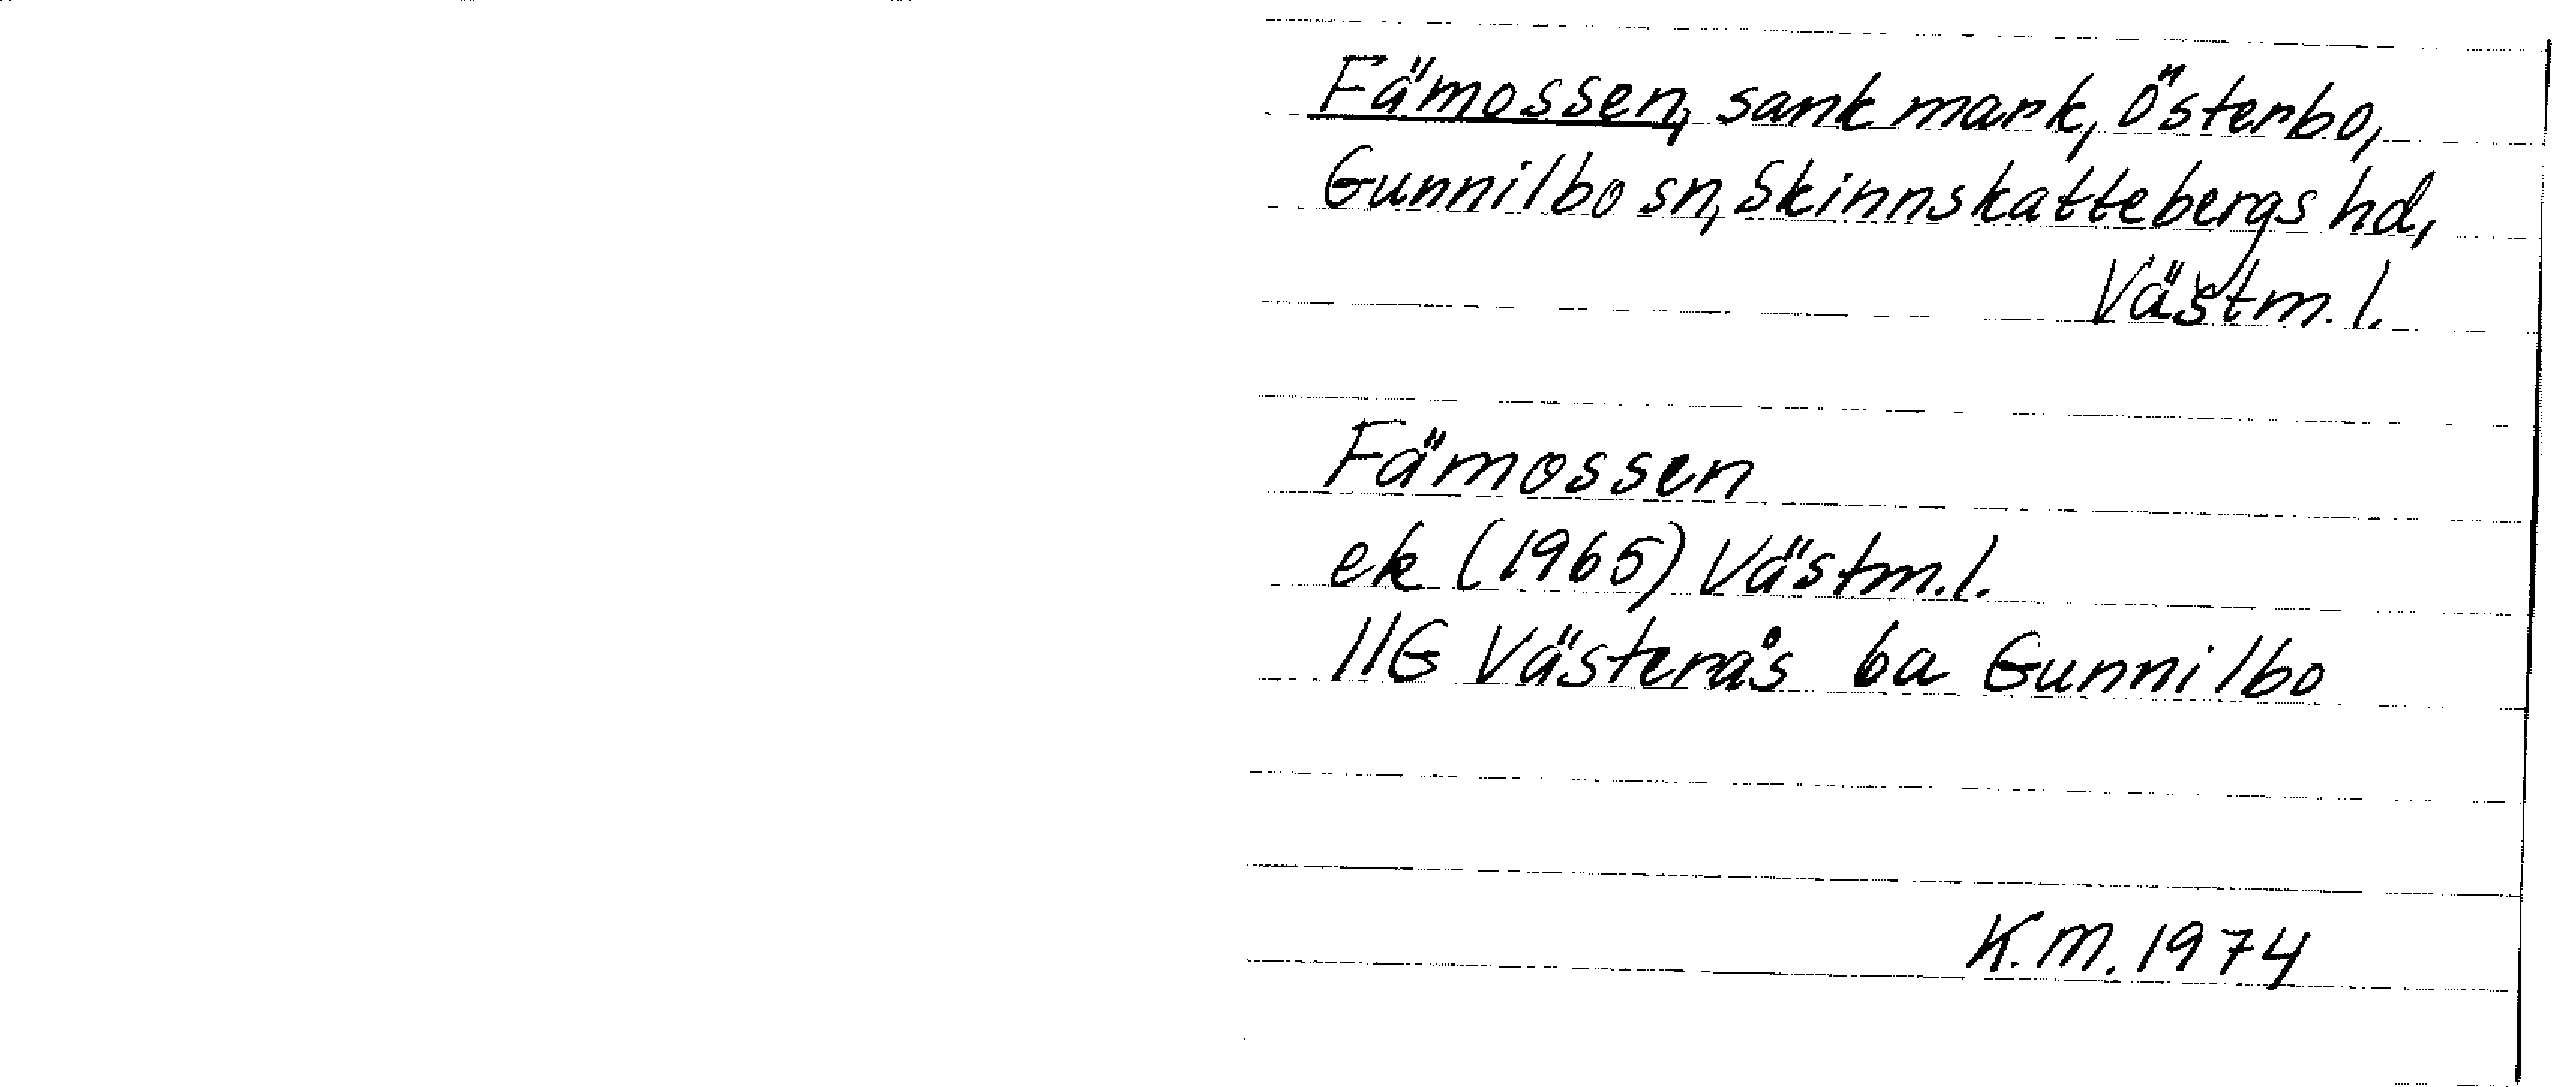 Fämossen, sank mark, Österbo,
Gunnilbo sn, Skinnskattebergs hd,
Västm. l.
Fämossen
ek (1965) Västm. l.
11G Västerås 6a Gunnilbo
K.M. 1974